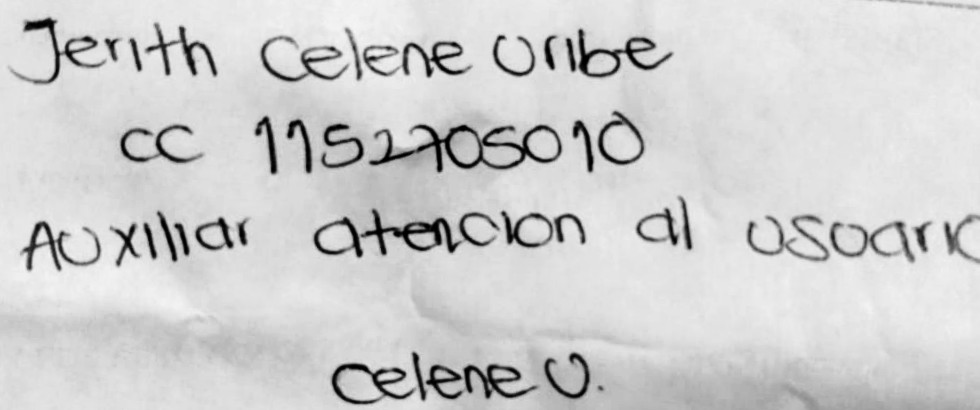 Jerith Celene Uribe
CC 1152705010
Auxiliar atencion al usuario
Celene U.